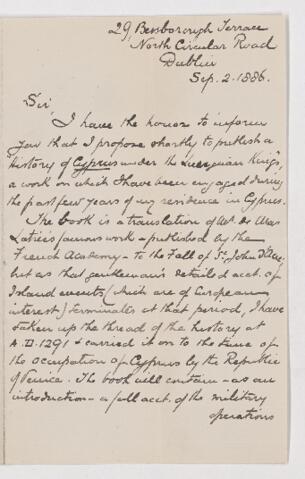 29 Bessborough Terrace
North Circular Road
Dublin
Sep. 2. 1886.
Sir
I have the honor to inform
you that I propose shortly to publish a
"History of Cyprus under the Lusignan Kings",
a work on which I have been engaged during
the past few years of my residence in Cyprus.
The book is a translation of Mr. de Mas
Latrie's famous work - published by the
French Academy - to the Fall of St. John D'Acre,
but as that gentleman's detailed acct. of
Island events (which are of European
interest) terminates at that period, I have
taken up the thread of the history at
A.D. 1291 & carried it on to the time of
the occupation of Cyprus by the Republic
of Venice. The book will contain - as an
introduction - a full acct. of the military
operations